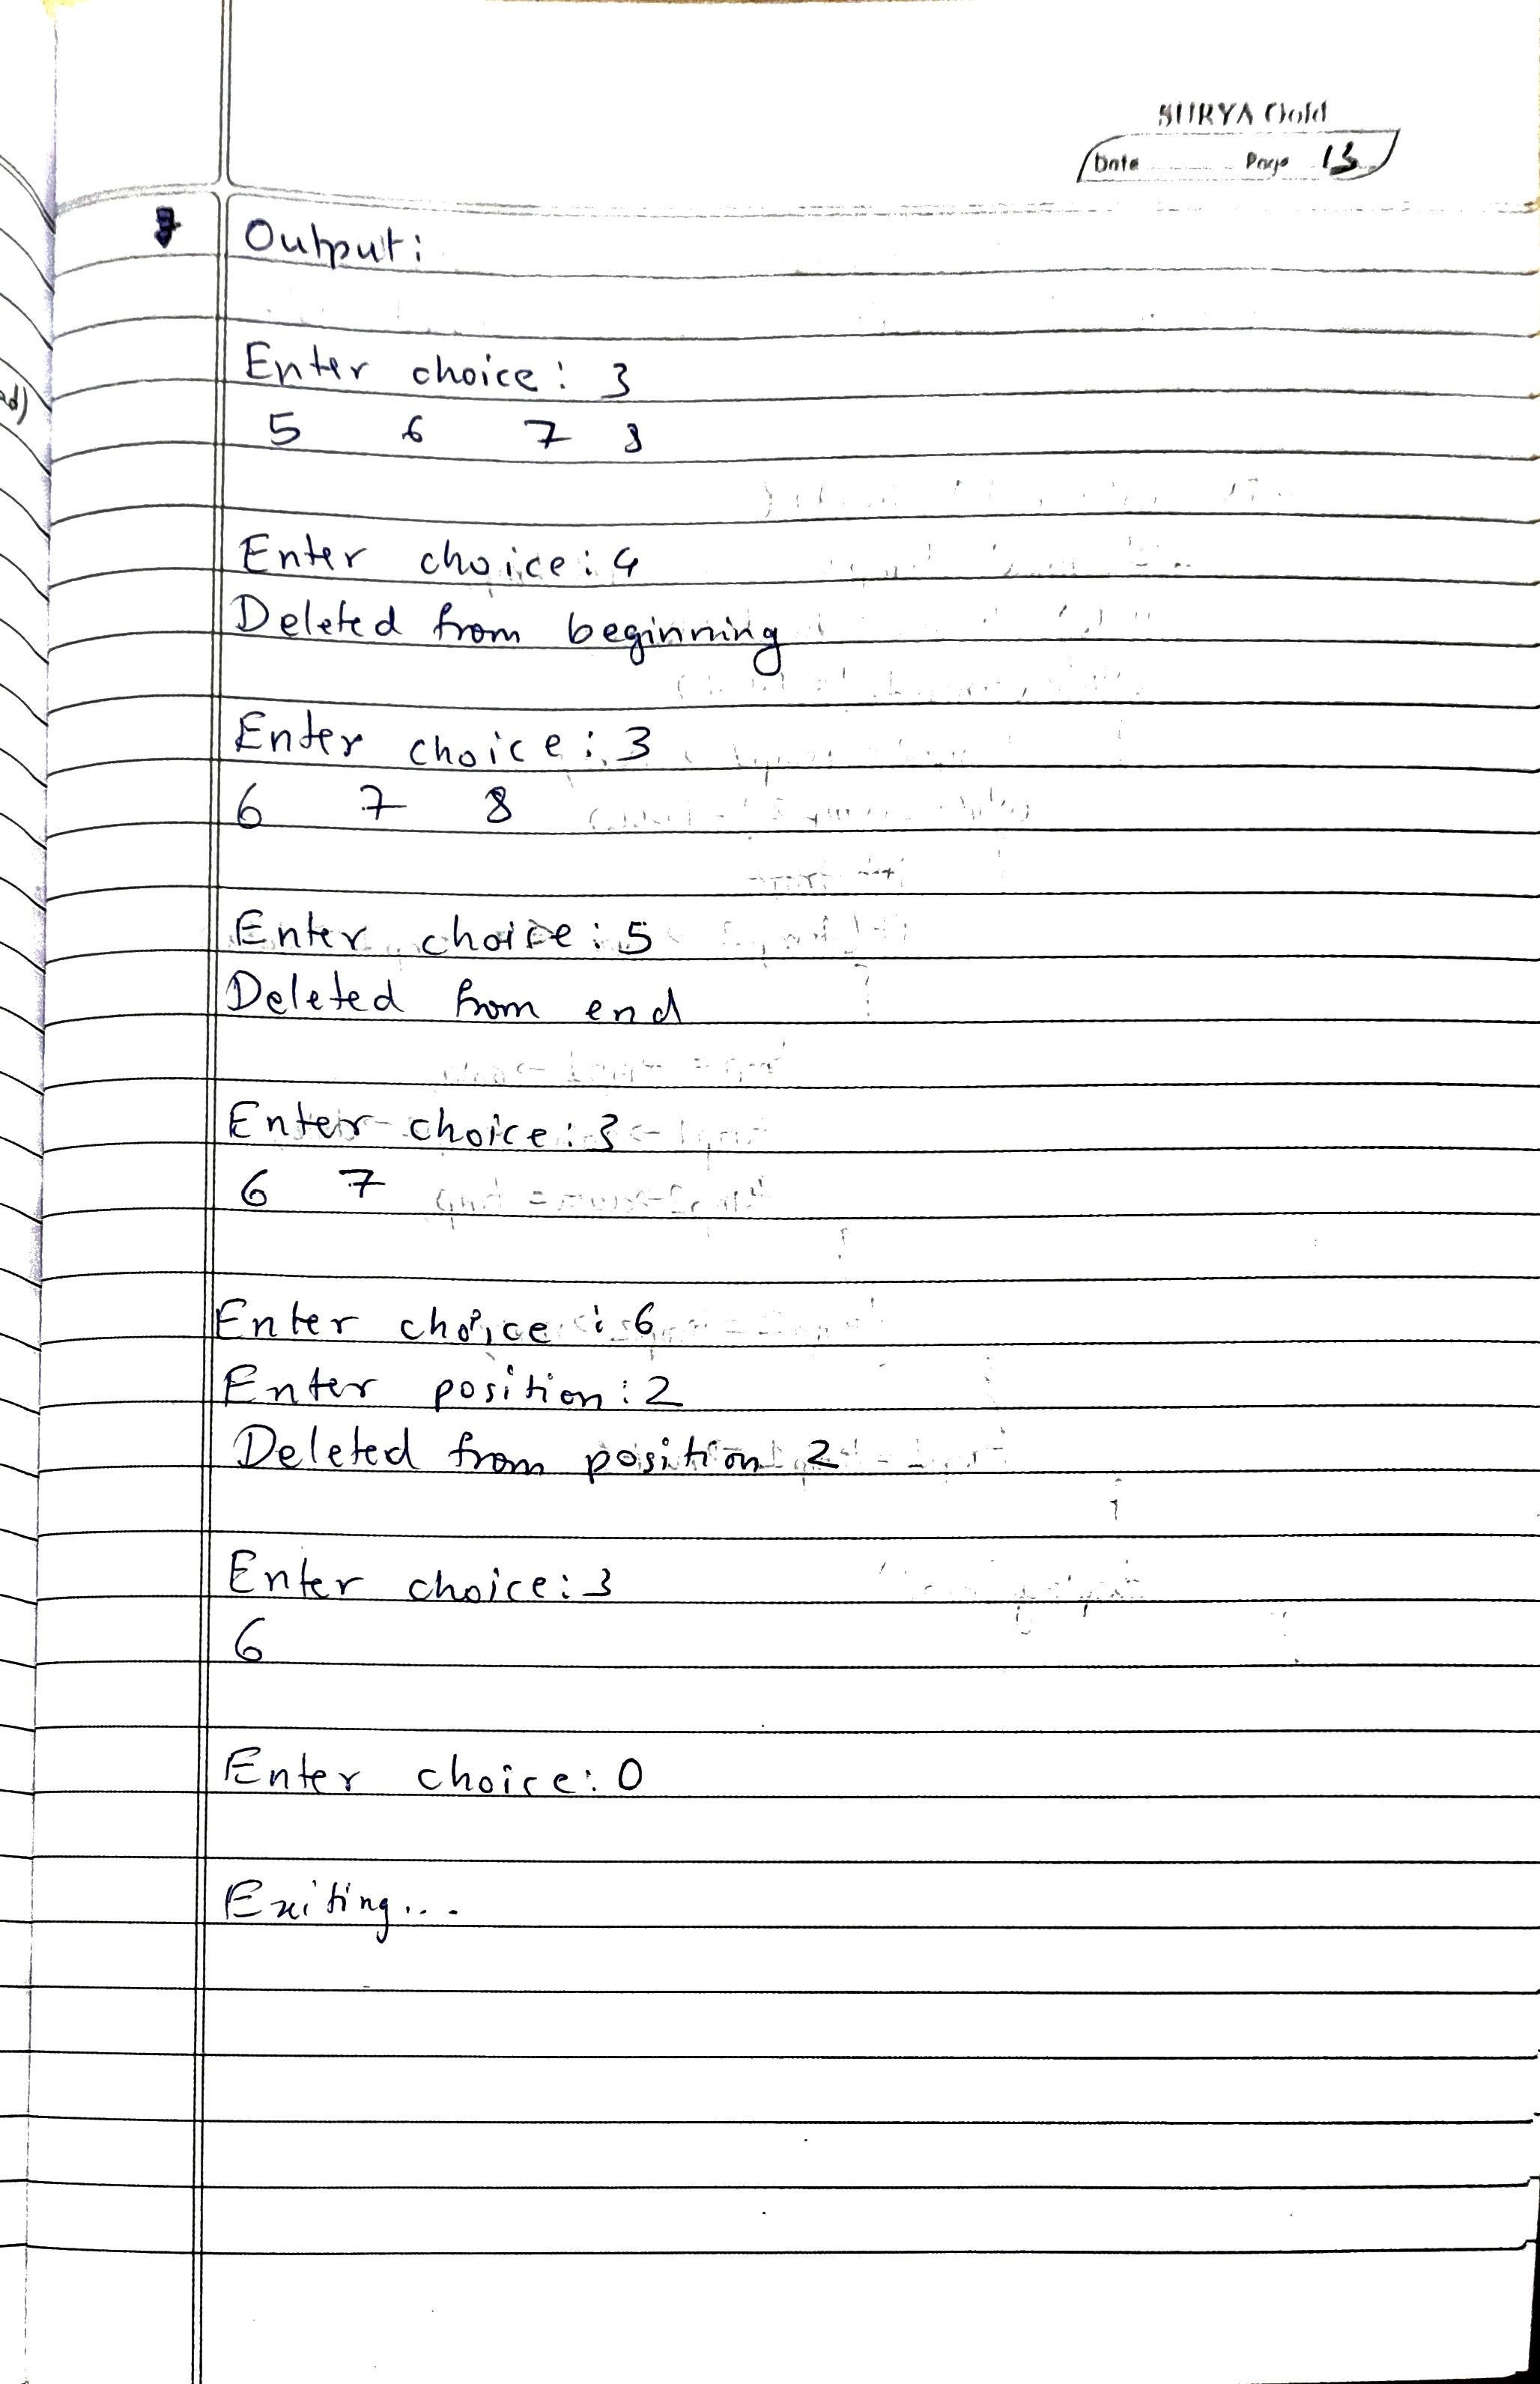 SURYA Gold
Date Page 13
Output:
Enter choice: 3
5 6 7 8
Enter choice: 4
Deleted from beginning
Enter choice: 3
6 7 8
Enter choice: 5
Deleted from end
Enter choice: 3
6 7
Enter choice: 6
Enter position: 2
Deleted from position 2
Enter choice: 3
6
Enter choice: 0
Exiting...